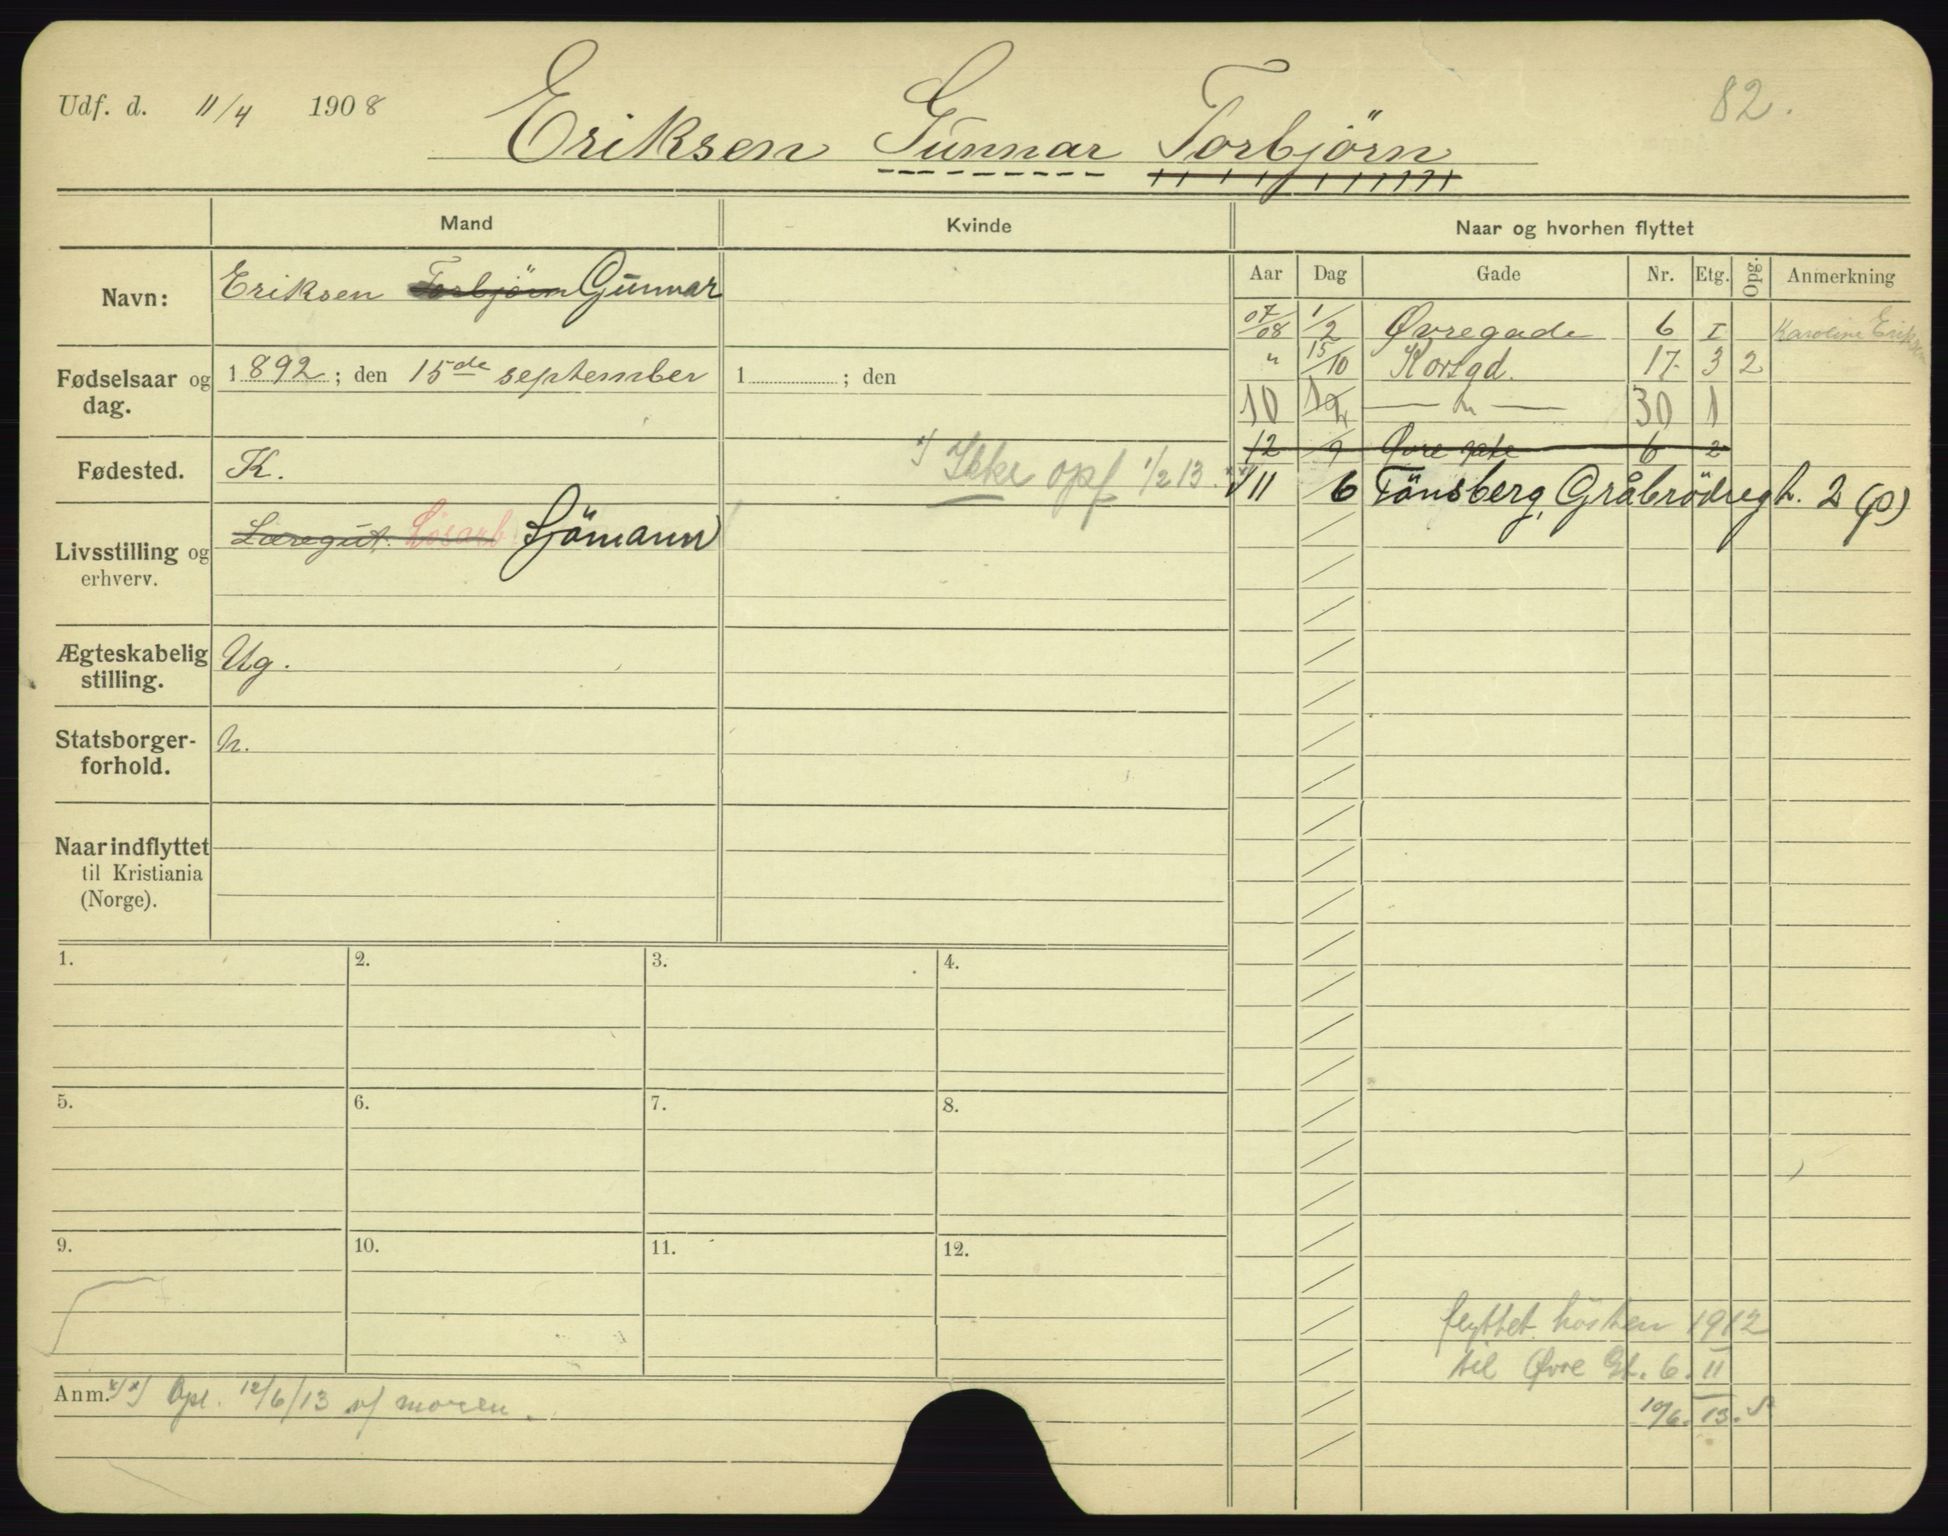 Udf. d. 11/4 1908
Eriksen Gunnar Torbjörn
82.
Mand
Kvinde
Naar og hvorhen flyttet
Aar Dag Gade Nr. Etg. Opg. Anmerkning
Navn: Eriksen Torbjörn Gunnar
07/08 1/2 Øvregade 6 I Karoline Eriksen
Fødselsaar og dag. 1892; den 15de september
1 ; den
" 15/10 Korsgd. 17. 3 2
10 — " — 30 1
12 /9 Øvre gate 6 2
Fødested. K.
x) Ikke opf 1/2 13.
11 /6 Tönsberg, Gråbrödregt. 2 (p)
Livsstilling og erhverv. Læregut. Løsarb Sjömann
Ægteskabelig stilling. Ug.
Statsborger-forhold. n.
Naar indflyttet til Kristiania (Norge).
1. 2. 3. 4.
5. 6. 7. 8.
9. 10. 11. 12.
flyttet hösten 1912
til Øvre Gt. 6. II
10/6. 13.
Anm. x) x) Opl. 12/6/13 af moren.